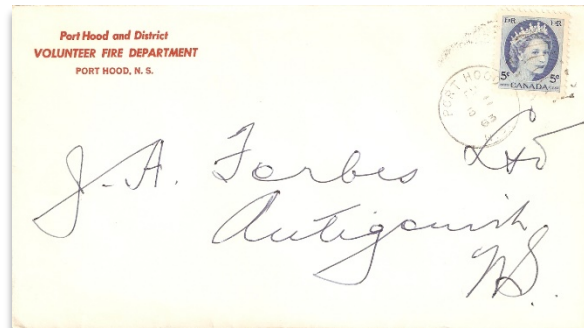 Port Hood and District
VOLUNTEER FIRE DEPARTMENT
PORT HOOD, N. S.
E R II E R
5¢ 5¢
CANADA
PORT HOOD
63
J. A. Forbes Ltd
Antigonish
N.S.